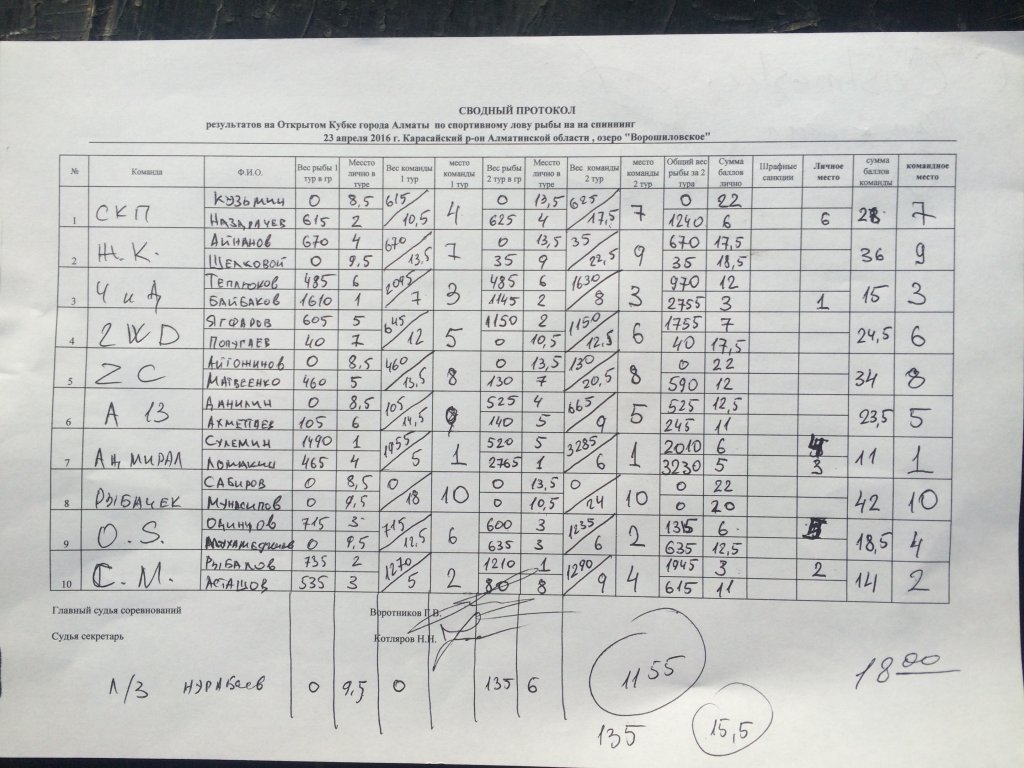 СВОДНЫЙ ПРОТОКОЛ
результатов на Открытом Кубке города Алматы по спортивному лову рыбы на на спиннинг
23 апреля 2016 г. Карасайский р-он Алматинской области , озеро "Ворошиловское"
№ Команда Ф.И.О. Вес рыбы 1 тур в гр Мессто лично в туре Вес команды 1 тур место команды 1 тур Вес рыбы 2 тур в гр Мессто лично в туре Вес команды 2 тур место команды 2 тур Общий вес рыбы за 2 тура Сумма баллов лично Штрафные санкции Личное место сумма баллов команды командное место
1 СКП Кузьмин 0 8,5 615/10,5 4 0 13,5 625/17,5 7 0 22 28 7
Назарачев 615 2 625 4 1240 6 6
2 Ж.К. Айнанов 670 4 670/13,5 7 0 13,5 35/22,5 9 670 17,5 36 9
Щелковой 0 9,5 35 9 35 18,5
3 Ч и Д Теплюков 485 6 2095/7 3 485 6 1630/8 3 970 12 15 3
Байбаков 1610 1 1145 2 2755 3 1
4 2WD Ягфаров 605 5 645/12 5 1150 2 1150/12,5 6 1755 7 24,5 6
Полугаев 40 7 0 10,5 40 17,5
5 ZC Айтжинов 0 8,5 460/13,5 8 0 13,5 130/20,5 8 0 22 34 8
Матвеенко 460 5 130 7 590 12
6 А 13 Данилин 0 8,5 105/14,5 9 525 4 665/9 5 525 12,5 23,5 5
Ахметаев 105 6 140 5 245 11
7 Адмирал Сулемин 1490 1 1955/5 1 520 5 3285/6 1 2010 6 11 1
Ломакин 465 4 2765 1 3230 5 3
8 Рыбачек Сабиров 0 8,5 0/18 10 0 13,5 0/24 10 0 22 42 10
Мунасипов 0 9,5 0 10,5 0 20
9 O.S. Одинцов 715 3 715/12,5 6 600 3 1235/6 2 1315 6 18,5 4
Мухамеджанов 0 9,5 635 3 635 12,5
10 С.М. Рыбалов 735 2 1270/5 2 1210 1 1290/9 4 1945 3 2 14 2
Асташов 535 3 80 8 615 11
Главный судья соревнований Воротников Г.В.
Судья секретарь Котляров Н.Н.
Л/З Нурабаев 0 9,5 0 135 6 1155 18 00
135 15,5